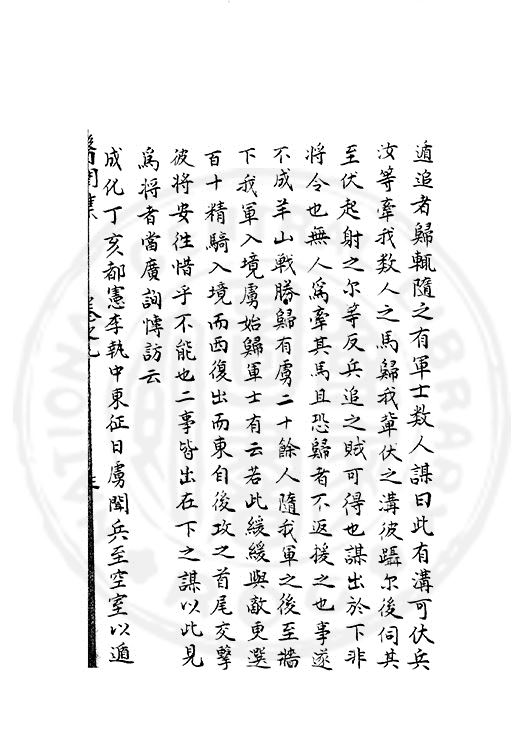 遁追者歸輒隨之有軍士数人謀曰此有溝可伏兵
汝等牽我数人之馬歸我軰伏之溝彼躡尔後伺其
至伏起射之尔等反兵追之賊可得也謀出於下非
將令也無人爲牽其馬且恐歸者不返援之也事遂
不成羊山戰勝歸有虜二十餘人隨我軍之後至墻
下我軍入境虜始歸軍士有云若此緩緩與敵更選
百十精騎入境而西復出而東自後攻之首尾交擊
彼將安往惜乎不能也二事皆出在下之謀以此見
爲將者當廣詢慱訪云
成化丁亥都憲李執中東征日虜聞兵至空室以遁
醫閭集
卷之九